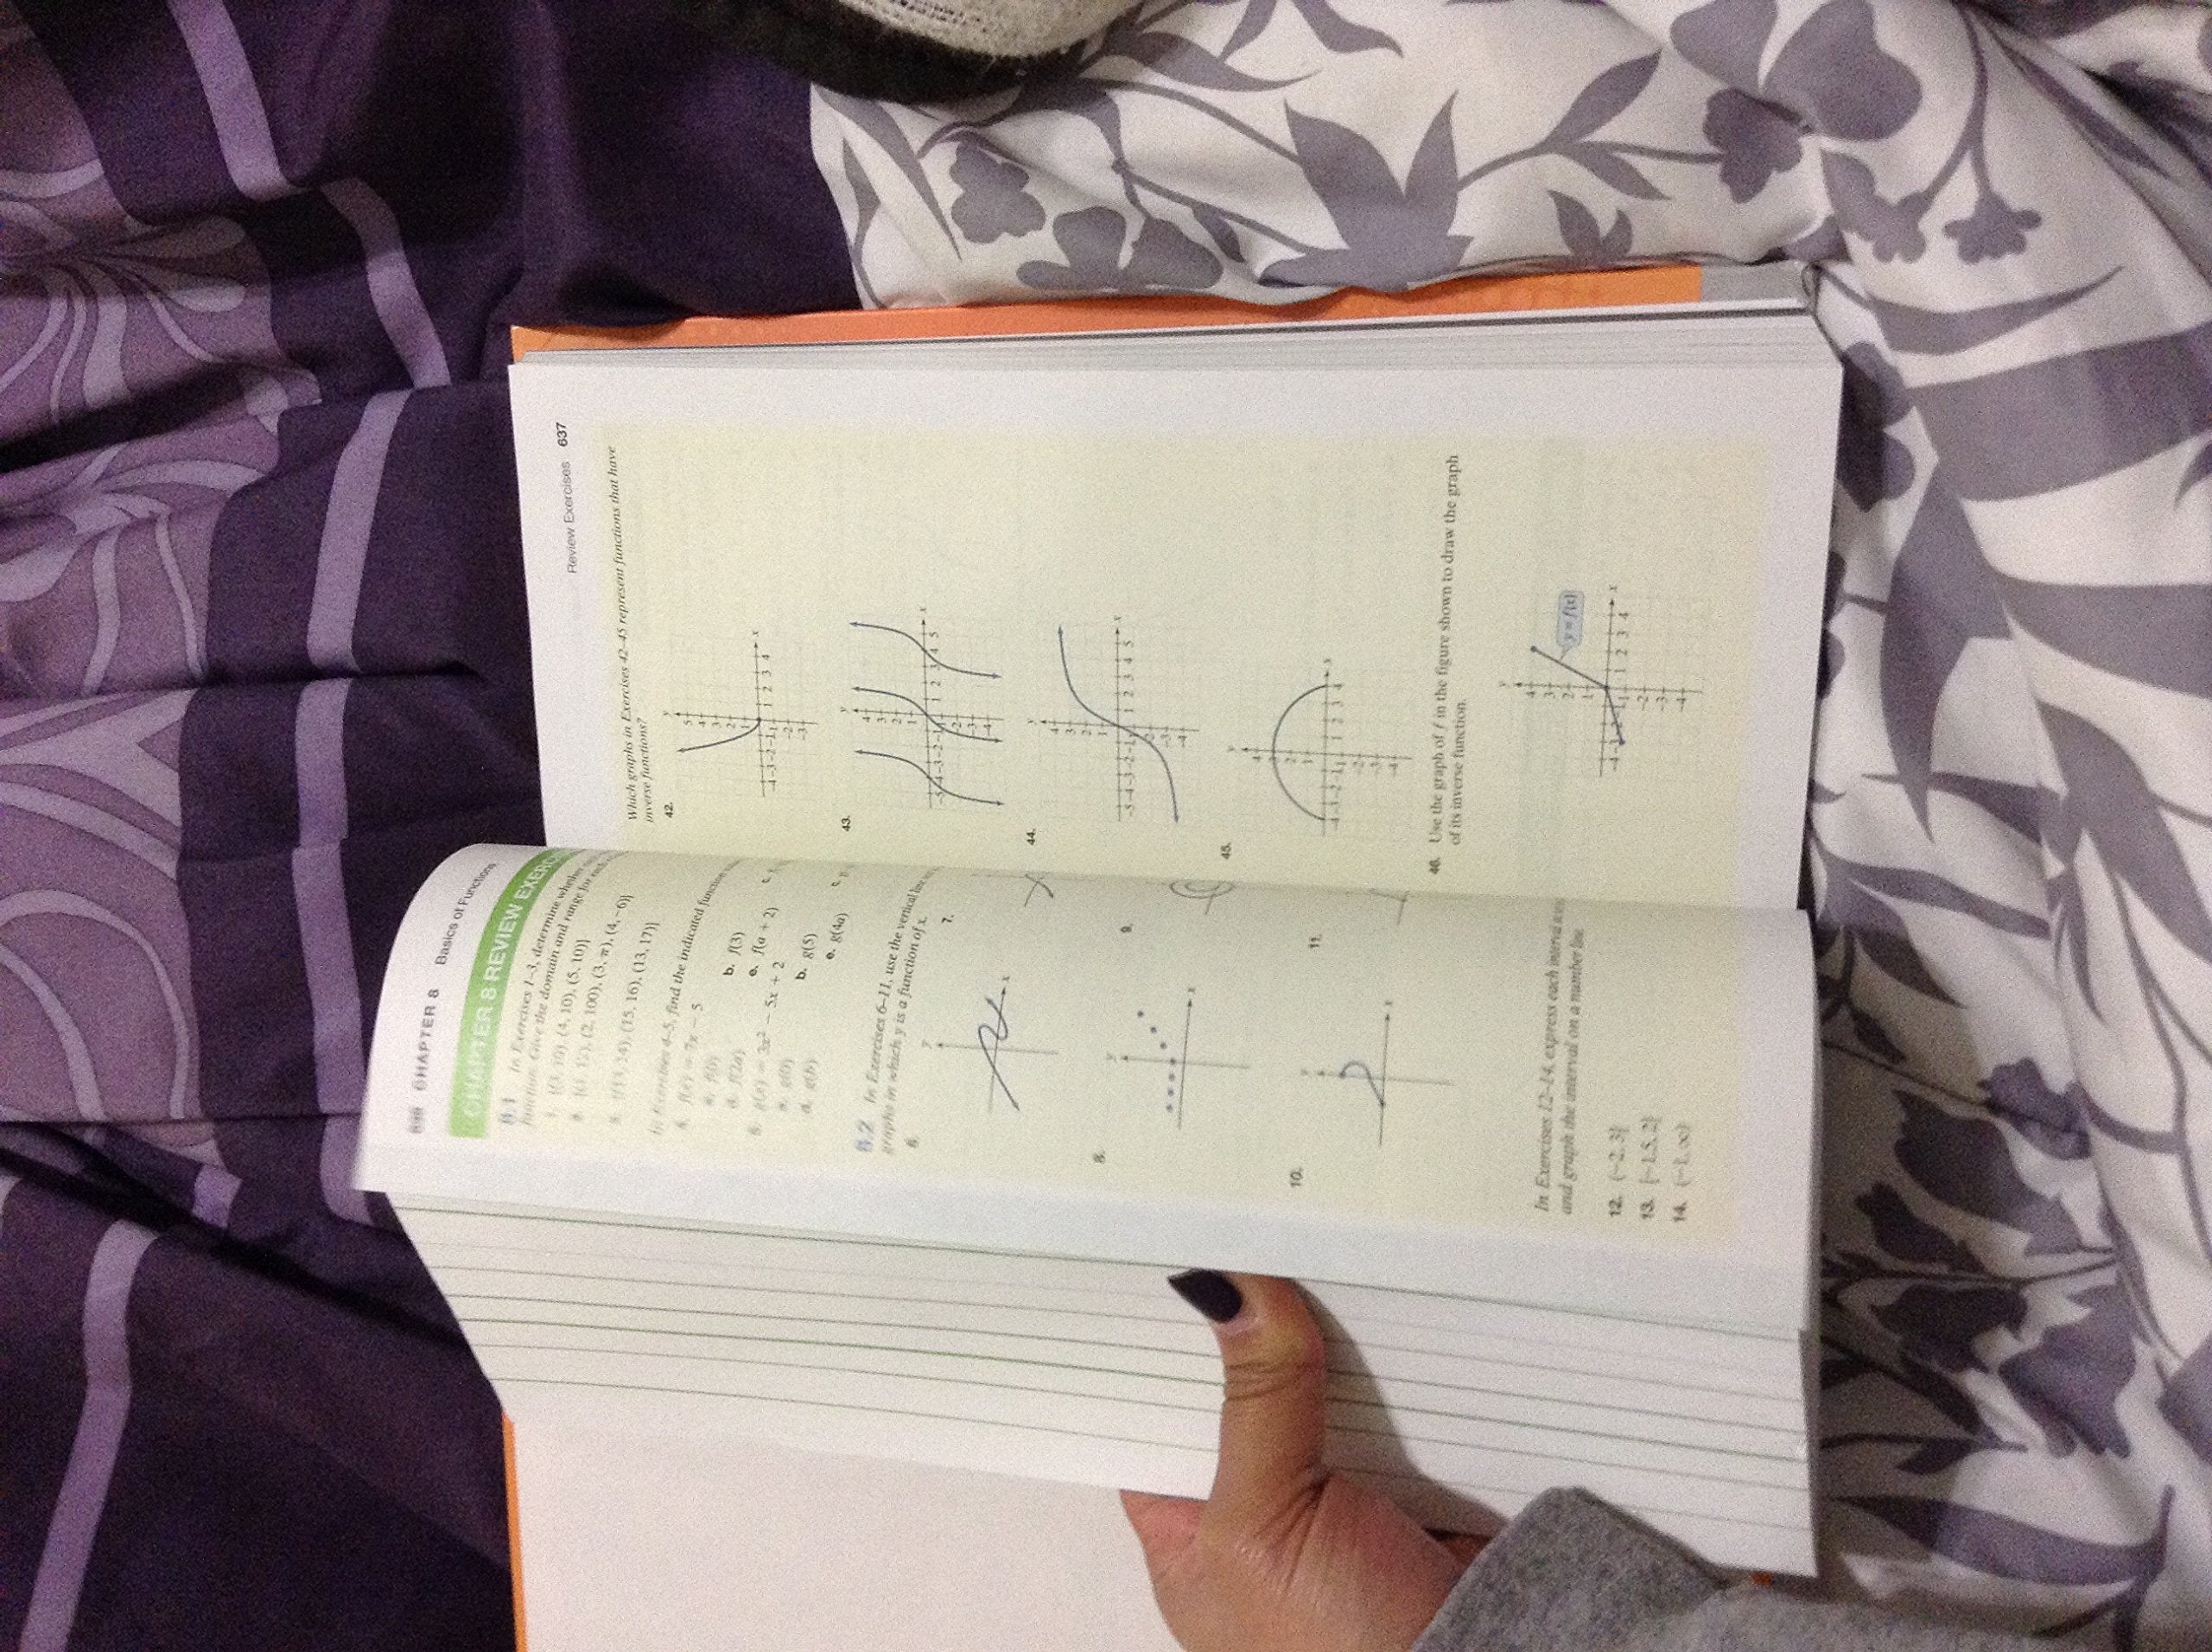 636 CHAPTER 8 Basics of Functions
CHAPTER 8 REVIEW EXERC
8.1 In Exercises 1–3, determine whether
function. Give the domain and range for each
1. {(3, 10), (4, 10), (5, 10)}
(2, 100), (3, π), (4, −6)}
3. {(13, 14), (15, 16), (13, 17)}
In Exercises 4–5, find the indicated function
4. f(x) = 7x − 5
a. f(0) b. f(3)
d. f(2a) e. f(a + 2)
5. g(x) = 3x² − 5x + 2
a. g(0) b. g(5)
d. g(b) e. g(4a)
8.2 In Exercises 6–11, use the vertical line
graphs in which y is a function of x.
6. 7.
y
x
8. 9.
y
x
10. 11.
y
x
In Exercises 12–14, express each interval
and graph the interval on a number line.
12. (−2, 3]
13. [−1.5, 2]
14. (−1, ∞)
Review Exercises 637
Which graphs in Exercises 42–45 represent functions that have
inverse functions?
42.
y
5
4
3
2
−4 −3 −2 −1 1 2 3 4 x
−2
−3
43.
y
4
3
2
1
−5 −4 −3 −2 −1 1 2 3 4 5 x
−2
−3
−4
44.
y
4
3
2
1
−5 −4 −3 −2 −1 1 2 3 4 5 x
−2
−3
−4
45.
y
4
2
1
−4 −3 −2 −1 1 2 3 4 x
−2
−3
−4
46. Use the graph of f in the figure shown to draw the graph
of its inverse function.
y
4
3
2
1
y = f(x)
−4 −3 −1 1 2 3 4 x
−2
−3
−4